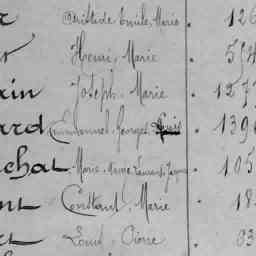 Aristide Emile Marie 126
Henri, Marie . 54
ain Joseph, Marie . 127
ard Emmanuel, Georges, . 139
chat Marie, Anne, Laurent, Jacques . 105
nt Constant, Marie . 18
Louis, Pierre . 03